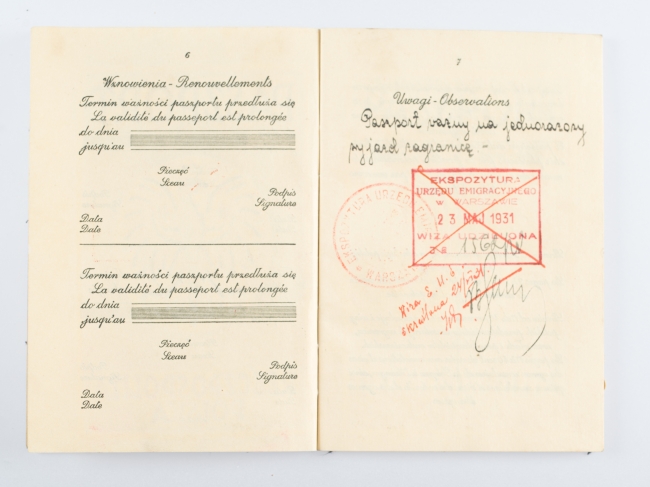 6
Wznowienia - Renouvellements
Termin ważności paszportu przedłuża się
La validité du passeport est prolongée
do dnia
jusqu'au
Pieczęć
Sceau
Podpis
Signature
Data
Date
Termin ważności paszportu przedłuża się
La validité du passeport est prolongée
do dnia
jusqu'au
Pieczęć
Sceau
Podpis
Signature
Data
Date
7
Uwagi - Observations
Paszport ważny na jednorazowy
wyjazd zagranicę. -
EKSPOZYTURA
URZĘDU EMIGRACYJNEGO
W WARSZAWIE
23 MAJ 1931
WIZA UDZIELONA
EKSPOZYTURA URZĘDU
Wiza E. U. E.
skreślona